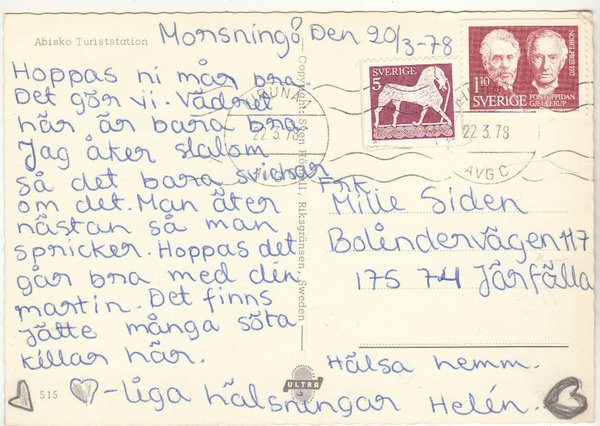 Abisko Turiststation
Morsning! Den 20/3-78
Hoppas ni mår bra
Det gör vi. Vädret
här är bara bra.
Jag åker slalom
så det bara svider
om det. Man äter
nästan så man
spricker. Hoppas det
går bra med din
martin. Det finns
jätte många söta
killar här.
515
-liga hälsningar Helén.
Hälsa hemm.
ULTRA
Copyright: Sven Hörnell, Riksgränsen, Sweden
SVERIGE
5
NOBELPRIS 1917
1.10
PONTOPPIDAN
SVERIGE GJELLERUP
22.3.78
22.3.78
AVG C
Frk.
Milie Siden
Bolindervägen 117
175 74 Järfälla